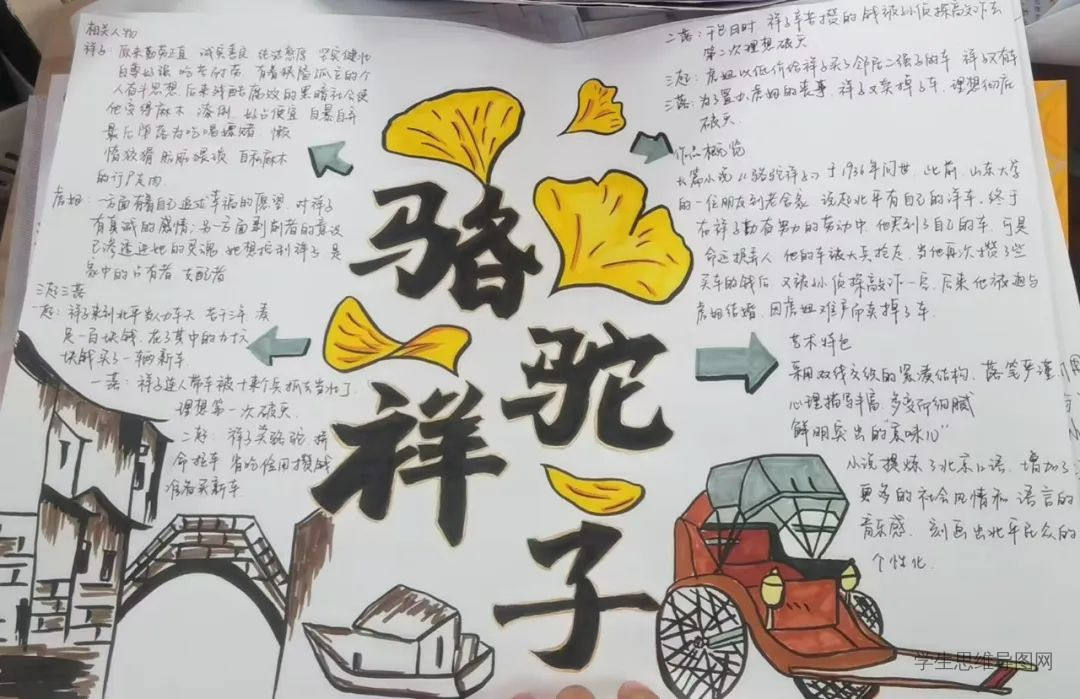 相关人物
祥子：原来勤劳正直 诚实善良 坚实健壮
自尊好强 吃苦耐劳 有着狭隘孤立的个
人奋斗思想 后来残酷腐败的黑暗社会使
他变得麻木 潦倒 好占便宜 自暴自弃
最后堕落为吃喝嫖赌 懒
惰狡猾 自私麻木
的行尸走肉
虎妞：一方面有着自己追求幸福的愿望，对祥子
有真诚的感情；另一方面剥削者的意识
已渗透进她的灵魂 她想控制祥子 是
家中的占有者 支配者
三起三落
一起：祥子来到北平当人力车夫 苦干三年 凑
足一百块钱
块钱买了一辆新车
一落：祥子连人带车被十来个兵抓去当壮丁
理想第一次破灭
二起：祥子卖骆驼 拼
命拉车 省吃俭用攒钱
准备买新车
骆驼
祥子
二落：干包月时 祥子辛苦攒的钱被孙侦探敲诈去
第二次理想破灭
三起：虎妞以低价给祥子买了邻居二强子的车 祥子又有车
三落：为了置办虎妞的丧事，祥子又卖掉了车，理想彻底
破灭
作品概览
长篇小说《骆驼祥子》于1936年问世，此前，山东大学
的一位朋友到老舍家 说起北平有自己的洋车，终于
在祥子勤奋努力的劳动中 他买到了自己的车，可是
命运捉弄人 他的车被大兵抢走，当他再次攒了些
买车的钱后 又被孙侦探敲诈一层，后来他被迫与
虎妞结婚，因虎妞难产而卖掉了车．
艺术特色
采用双线交织的紧凑结构，落笔严谨
心理描写丰富，多变而细腻
鲜明突出的"京味儿"
小说提炼了北京口语，增加了
更多的社会风情和语言的
音乐感，刻画出北平民众的
个性化．
学生思维导图网